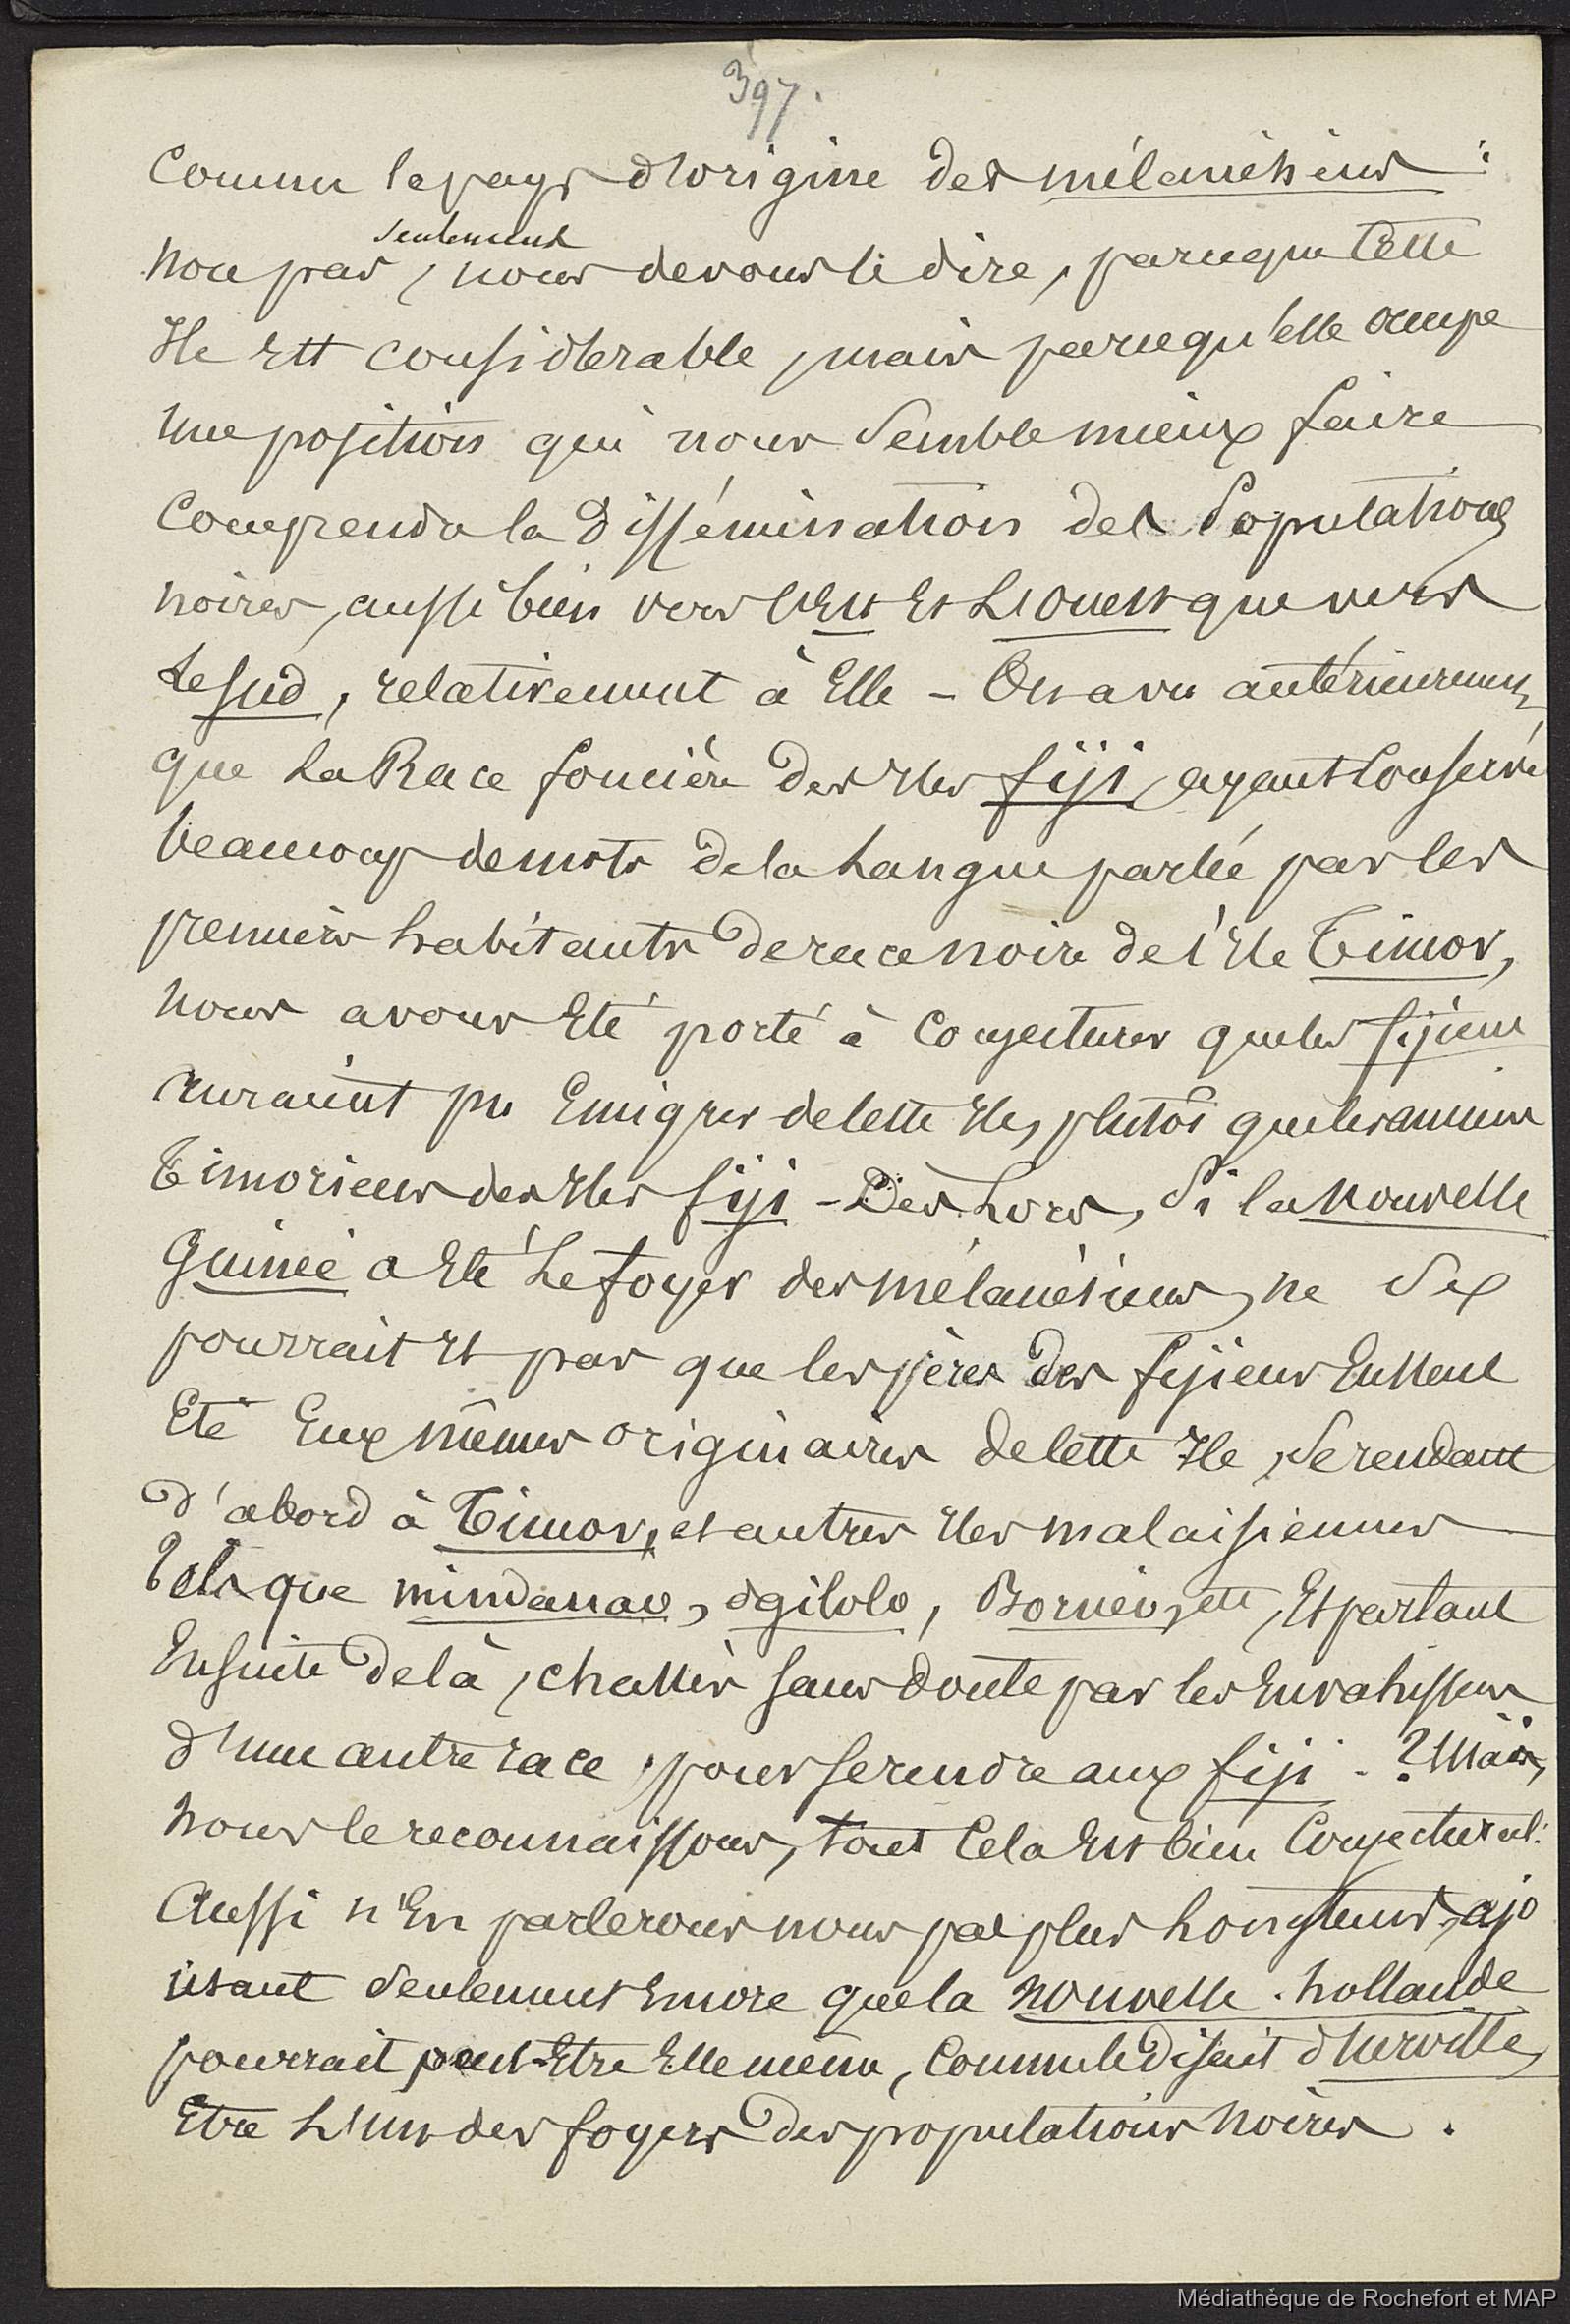 397.
Comme le pays d'origine des mélanésiens :
non pas seulement, nous devons le dire, parceque cette
Ile est considérable, mais parcequ'elle occupe
une position qui nous semble mieux faire
comprendre la dissémination des populations
noires, aussi bien vers l'Est et L'ouest que vers
Le sud, relativement à Elle - On a vu antérieurement
que La Race foncière des Iles fiji, ayant conservé
beaucoup de mots de la Langue parlée par les
premiers habitants de race noire de l'Ile Timor,
nous avons Eté porté à conjecturer que les fijiens
auraient pu Emigrer de cette Ile, plutôt que les anciens
Timoriens des Iles fiji - Dès Lors, si la Nouvelle
Guinée a Eté Le foyer des mélanésiens, ne se
pourrait il pas que les pères des fijiens Eussent
Eté Eux mêmes originaires de cette Ile, se rendant
d'abord à Timor, et autres Iles malaisiennes
tels que mindanao, dgilolo, Bornéo, etc, Et partant
Ensuite de là, chassés sans doute par les Envahisseurs
d'une autre race, pour se rendre aux fiji - ? Mais,
nous le reconnaissons, tout cela Est bien conjectural :
Aussi n'En parlerons nous pas plus Longtems, ajo
utant seulement Encore que la nouvelle - hollande
pourrait peut-Etre Elle même, comme le disait d'Urville,
Etre L'un des foyers des populations noires .
Médiathèque de Rochefort et MAP